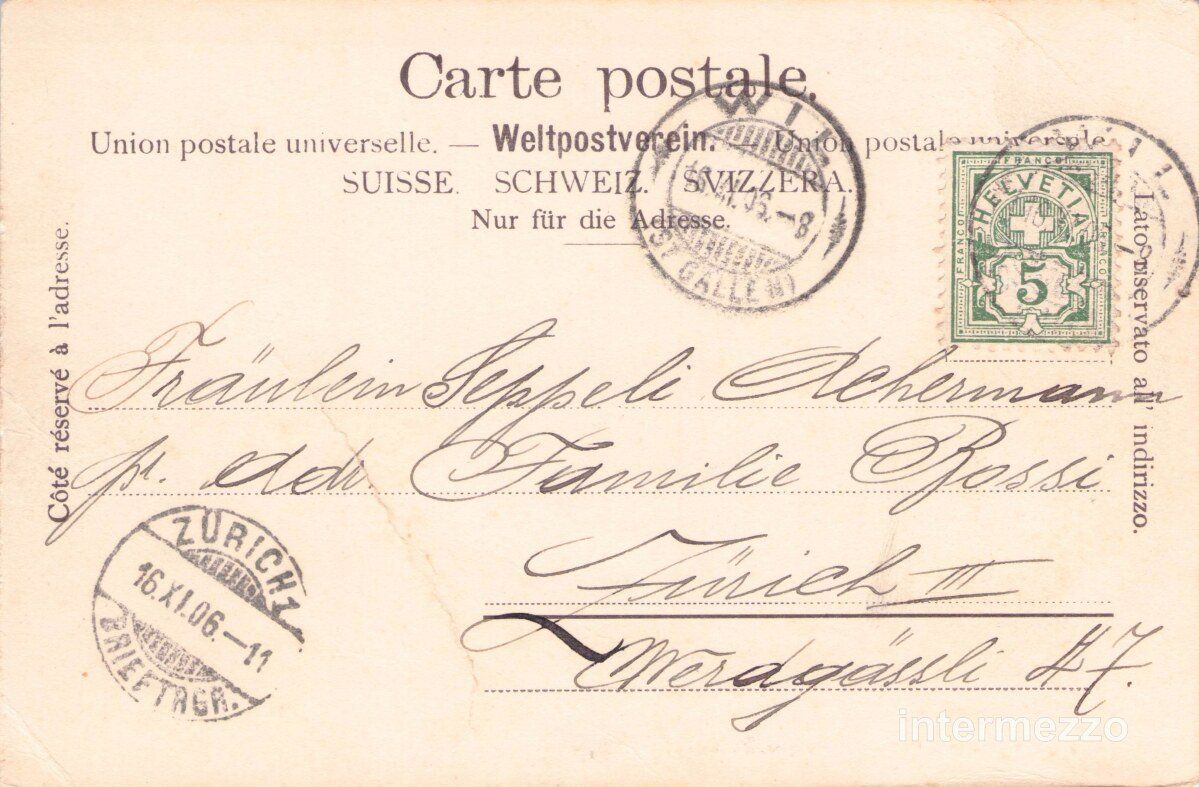 Carte postale.
Union postale universelle. — Weltpostverein. — Union postale universelle.
SUISSE. SCHWEIZ. SVIZZERA.
Nur für die Adresse.
Côté réservé à l'adresse.
Lato riservato all' indirizzo.
WIL
16.XI.06.–8
(ST GALLEN)
WIL
FRANCO
FRANCO
FRANCO
HELVETIA
5
Fräulein Seppeli Achermann
pr. adr Familie Rossi
Zürich III
Werdgässli 47.
ZÜRICH 1
16.XI.06.–11
BRIEFTRGR.
intermezzo